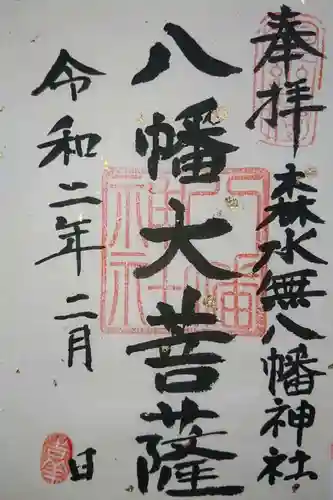 奉拝
森水無八幡神社
八幡大菩薩
令和二年二月
日